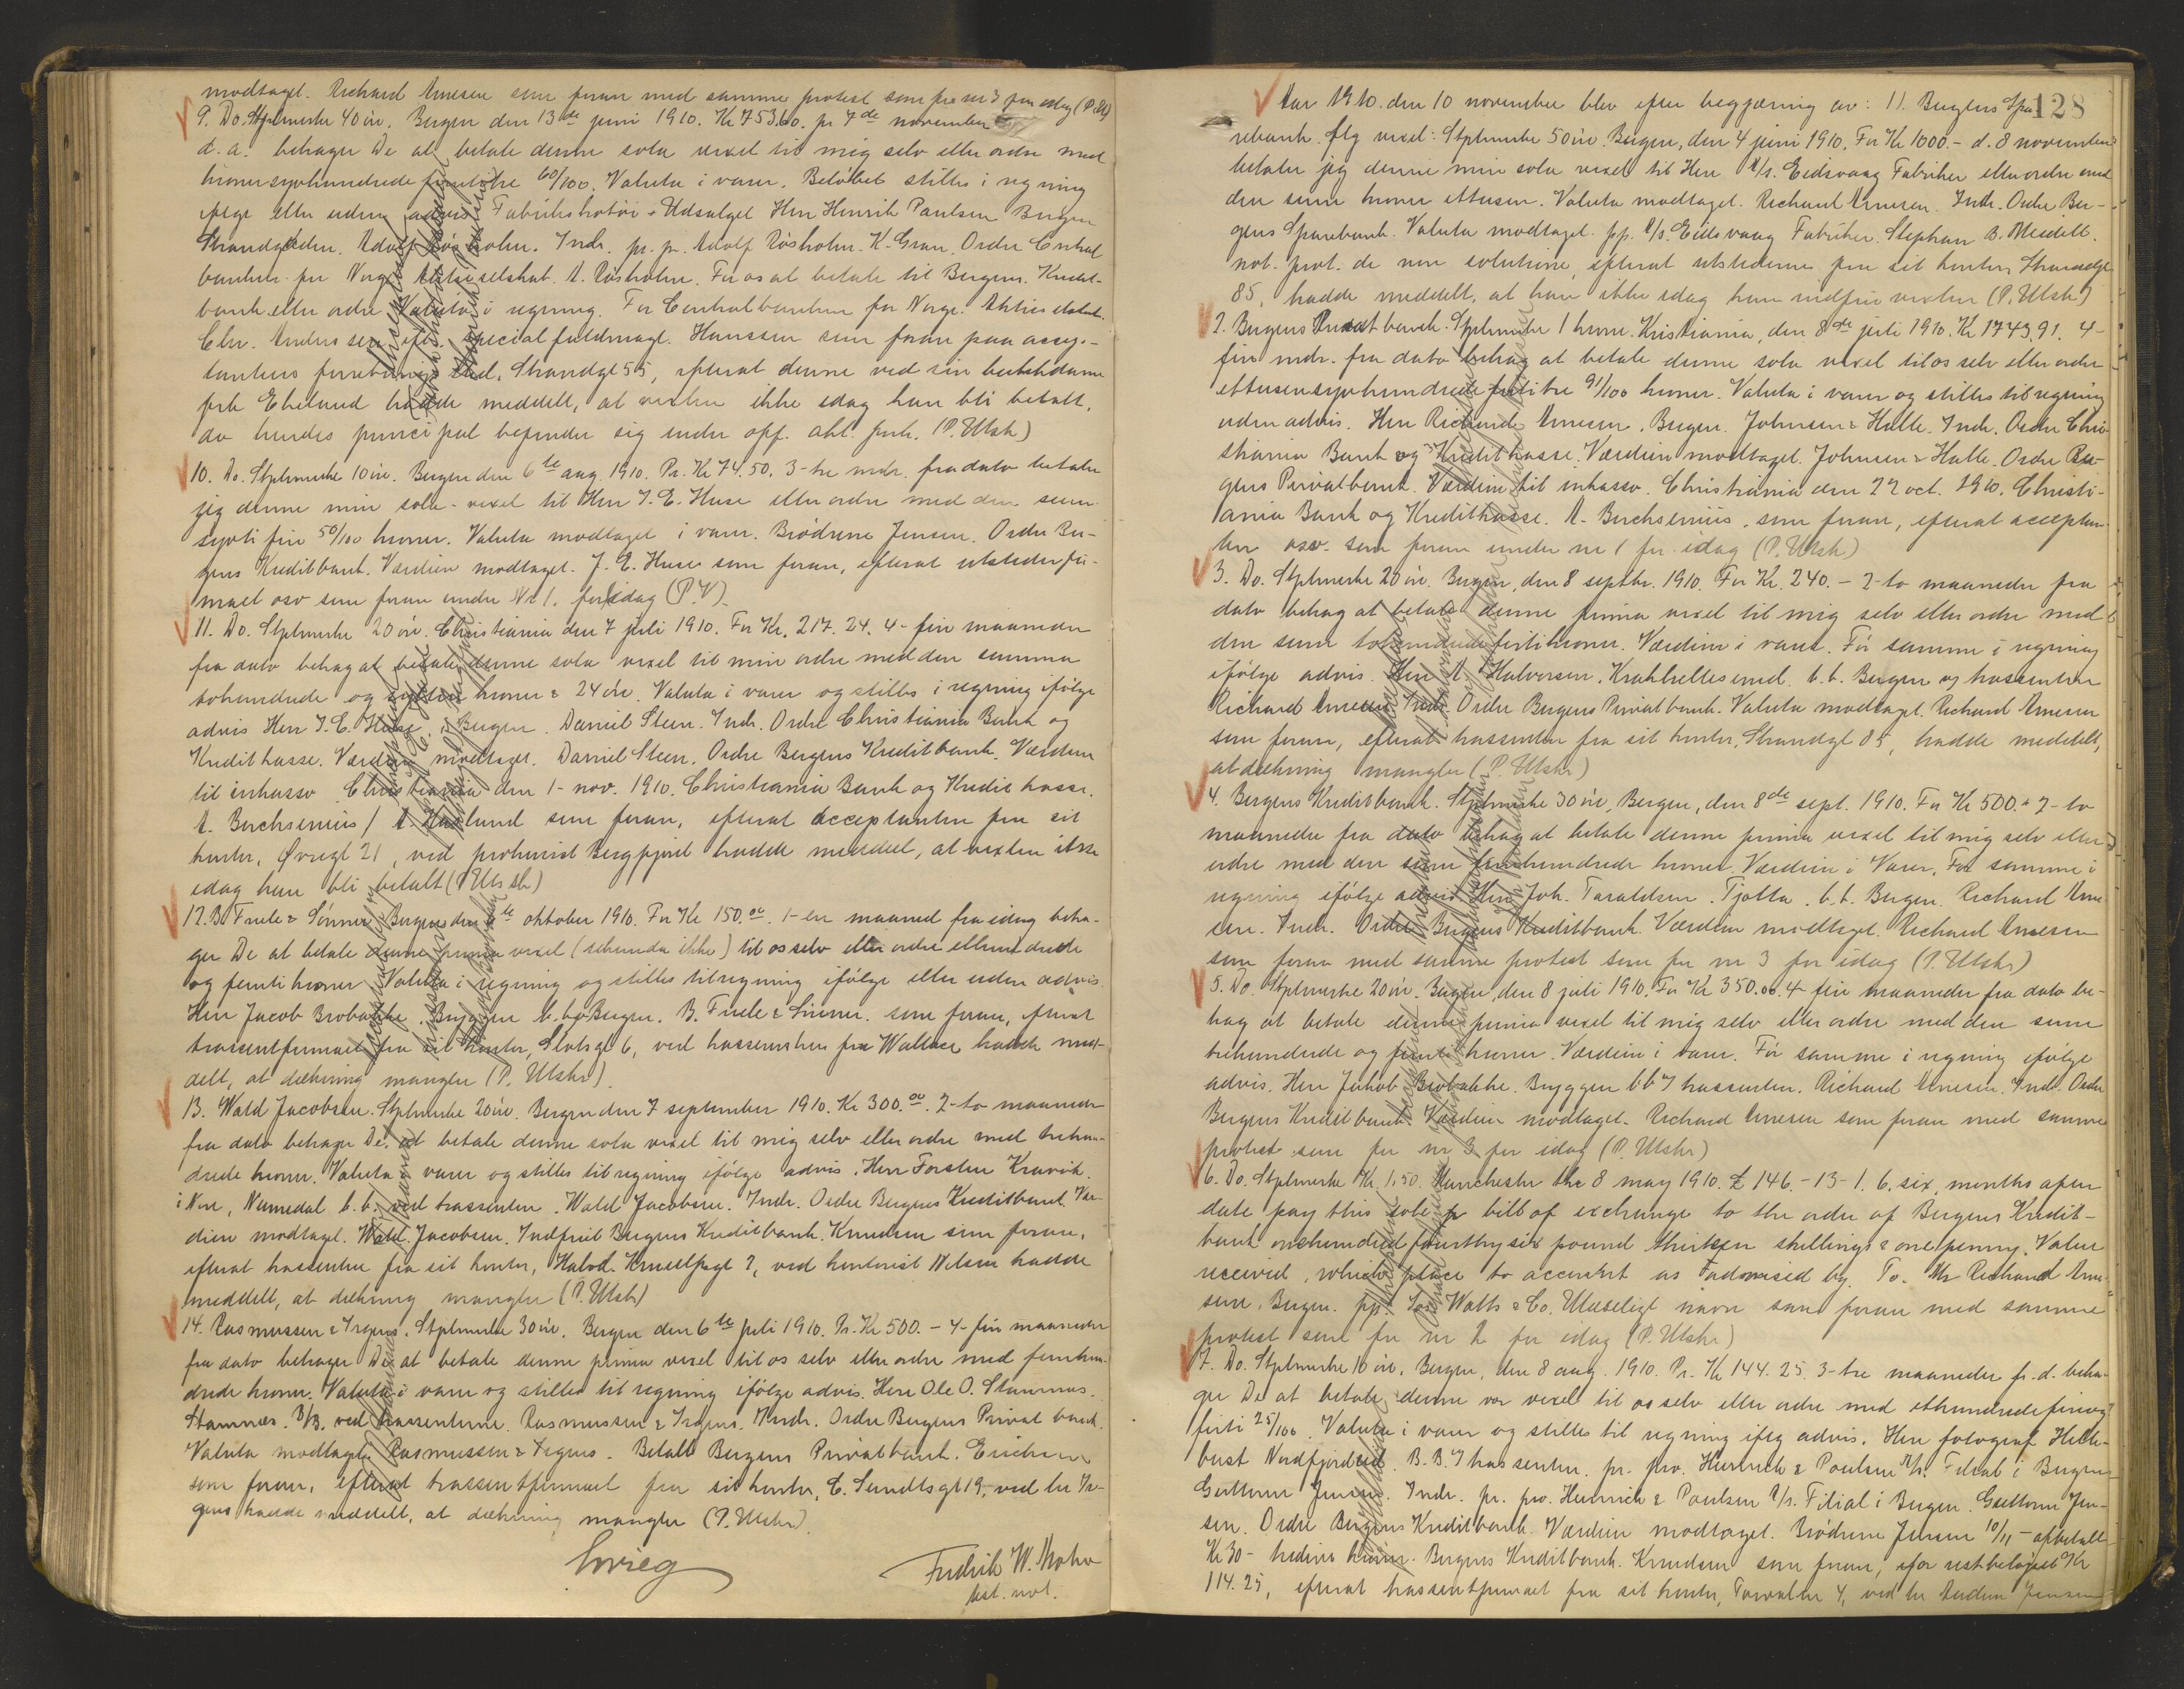 modtaget. Richard Arnesen som foran med samme protest som for nr 3 for idag (P. Utsk)
9. Do. Stplmerke 40 øre. Bergen den 13de juni 1910. Kr 753.60. pr 7de november
d. a. behager De at betale denne sola vexel til mig selv eller ordre med
kroner syvhundrede femtitre 60/100. Valuta i varer. Beløbet stilles i regning
ifølge eller uden advis Fabrikskontor & Udsalget Herr Henrik Paulsen Bergen
Strandgaden. Adolf Røsholm. Indr. pr. pr. Adolf Røsholm. K. Gran. Ordre Central
banken for Norge Aktieselskab. A. Røsholm. For os at betale til Bergens Kredit-
bank eller ordre Valuta i regning. For Centralbanken for Norge. Aktieselskab.
Chr. Anderssen ifl. special fuldmagt. Hanssen som foran paa accep-
tantens forretningslokal, Strandgt 55, efterat denne ved sin butikdame
frk Ekelund hadde meddelt, at vexlen ikke idag kan bli betalt,
da hendes principal befinder sig under opf. akl. forh. (P. Utsk)
10. Do. Stplmerke 10 øre. Bergen den 6te aug. 1910. Pr. Kr 74.50. 3-tre mdr. fra dato betaler
jeg denne min sola-vexel til Herr J. E. Huse eller ordre med den sum
sytti fire 50/100 kroner. Valuta modtaget i varer. Brødrene Jensen. Ordre Ber-
gens Kreditbank. Værdien modtaget. J. E. Huse som foran, efterat utstederfir-
maet osv som foran under Nr 1. for idag (P. U)
11. Do. Stplmerke 20 øre. Christiania den 7 juli 1910. For Kr. 217. 24. 4- fire maaneder
fra dato behag at betale denne sola vexel til min ordre med den summa
tohundrede og sytten kroner & 24 øre. Valuta i varer og stilles i regning ifølge
advis Herr J. E. Huse, Bergen. Daniel Steen. Indr. Ordre Christiania Bank og
Kreditkasse. Værdien modtaget. Daniel Steen. Ordre Bergens Kreditbank. Værdien
til inkasso Christiania den 1- nov. 1910. Christiania Bank og Kreditkasse.
A. Berchsenius / A. Haslund som foran, efterat acceptanten fra sit
kontor, Øvregt 21, ved prokurist Bergfjord hadde meddelt, at vexlen ikke
idag kan bli betalt (P. Utsk)
12. B. Friele & Sønner Bergen den te oktober 1910. For Kr 150.00. 1- en maaned fra idag beha-
ger De at betale denne prima vexel (sekunda ikke) til os selv eller ordre ethundrede
og femti kroner Valuta i regning og stilles til regning ifølge eller uden advis.
Herr Jacob Brobakke. Bryggen b. b. Bergen. B. Friele & Sønner. som foran, efterat
trassentfirmaet fra sit kontor, Slotsgt 6, ved kassereren fra Wallace hadde med-
delt, at dækning mangler (P. Utskr)
13. Wald Jacobsen. Stplmerke 20 øre. Bergen den 7 september 1910. Kr 300.00. 2- to maaneder
fra dato behager De at betale denne sola vexel til mig selv eller ordre med trehun-
drede kroner. Valuta i varer og stilles til regning ifølge advis. Herr Torsten Kravik.
i Nore, Numedal b. b. ved trassenten. Wald Jacobsen. Indr. Ordre Bergens Kreditbank Vær-
dien modtaget. Wald. Jacobsen. Indfriet Bergens Kreditbank. Knudsen som foran,
efterat trassenten fra sit kontor, Halvd. Kruselfsgt 2, ved kontorist Nilsen hadde
meddelt, at dækning mangler (P. Utsk)
14. Rasmussen & Irgens. Stplmerke 30 øre. Bergen den 6te juli 1910. Pr. Kr 500.- 4- fire maaneder
fra dato behager De at betale denne prima vexel til os selv eller ordre med femhun-
drede kroner. Valuta i varer og stilles til regning ifølge advis. Herr Ole O. Stamnes.
Stamnes. B/B. ved trassenterne. Rasmussen & Irgens. Indr. Ordre Bergens Privat bank.
Valuta modtaget. Rasmussen & Irgens. Betalt Bergens Privatbank. Erichsen
som foran, efterat trassentfirmaet fra sit kontor, C. Sundtsgt 19, ved hr Ir-
gens hadde meddelt, at dækning mangler (P. Utskr).
Grieg
Fredrik W. Mohr
bst. not.
128
Aar 1910. den 10 november blev efter begjæring av: 1). Bergens Spa-
rebank flg vexel: Stplmerke 50 øre. Bergen, den 4 juni 1910. For Kr 1000.- d. 8 november
betaler jeg denne min sola vexel til Herr A/s. Eidsvaag Fabriker eller ordre med
den sum kroner ettusen. Valuta modtaget. Richard Arnesen. Indr. Ordre Ber-
gens Sparebank. Valuta modtaget. pp. A/s. Eidsvaag Fabriker. Stephan B. Meidell.
not. prot. de non solutione, efterat utstederen fra sit kontor, Strandgt
85, hadde meddelt, at han ikke idag kan indfri vexlen (P. Utsk)
2. Bergens Privatbank. Stplmerke 1 krone. Kristiania, den 8de juli 1910. Kr 1743.91. 4-
fire mdr. fra dato behag at betale denne sola vexel til os selv eller ordre
ettusensyvhundrede førtitre 91/100 kroner. Valuta i varer og stilles til regning
uden advis. Herr Richard Arnesen, Bergen. Johnsen & Halle. Indr. Ordre Chri-
stiania Bank og Kreditkasse. Værdien modtaget. Johnsen & Halle. Ordre Ber-
gens Privatbank. Værdien til inkasso. Christiania den 22 oct. 1910. Christi-
ania Bank og Kreditkasse. A. Berchsenius. som foran, efterat acceptan-
ten osv. som foran under nr 1 for idag (P. Utsk)
3. Do. Stplmerke 20 øre. Bergen, den 8 septbr. 1910. For Kr. 240. - 2- to maaneder fra
dato behag at betale denne prima vexel til mig selv eller ordre med
den sum tohundrede førti kroner. Værdien i varer. Før samme i regning
ifølge advis. Herr A. Halvorsen. Krakhellesund. b. b. Bergen v/ trassenten
Richard Arnesen Indr. Ordre Bergens Privatbank. Valuta modtaget. Richard Arnesen
som foran, efterat trassenten fra sit kontor, Strandgt 85, hadde meddelt,
at dækning mangler (P. Utskr)
4. Bergens Kreditbank. Stplmerke 30 øre, Bergen, den 8de sept. 1910. For Kr 500.- 2- to
maaneder fra dato behag at betale denne prima vexel til mig selv eller
ordre med den sum femhundrede kroner. Værdien i Varer. Før samme i
regning ifølge advis. Herr Joh. Taraldsen. Tjøtta. b. b. Bergen. Richard Arne-
sen. Indr. Ordre Bergens Kreditbank. Værdien modtaget. Richard Arnesen
som foran med samme protest som for nr 3 for idag (P. Utskr)
5. Do. Stplmerke 20 øre. Bergen, den 8 juli 1910. For Kr 350.00. 4 fire maaneder fra dato be-
hag at betale denne prima vexel til mig selv eller ordre med den sum
trehundrede og femti kroner. Værdien i varer. Før samme i regning ifølge
advis. Herr Jakob Brobakke. Bryggen b b / trassenten. Richard Arnesen. Indr. Ordre
Bergens Kreditbank. Værdien modtaget. Richard Arnesen som foran med samme
protest som for nr 3 for idag (P. Utskr)
6. Do. Stplmerke Kr. 1.50. Manchester the 8 may 1910. £ 146 - 13 - 1. 6. six, months after
date pay this sola bill of exchange to the order of Bergens Kredit-
bank onehundred fourthysix pound thirteen shillings & one penny, Value
received, which place to account as advised by. To. Mr Richard Arne-
sen. Bergen. pp. Watts & Co. Ulæseligt navn som foran med samme
protest som for nr 2 for idag (P. Utskr)
7. Do. Stplmerke 10 øre. Bergen, den 8 aug. 1910. Pr. Kr 144. 25. 3-tre maaneder fr. d. beha-
ger De at betale denne vor vexel til os selv eller ordre med ethundrede fireog
førti 25/100. Valuta i varer og stilles til regning iflg advis. Herr fotograf
Nordfjordeid. B. B. / trassenten. pr. pro. Heinrich & Poulsen A/s. Filial i Bergen
Guttorm Jensen. Indr. pr. pro. Heinrich & Poulsen A/s. Filial i Bergen. Guttorm Jen-
sen. Ordre Bergens Kreditbank. Værdien modtaget. Brødrene Jensen 10/11 - avbetalt
Kr 30- tredive kroner. Bergens Kreditbank. Knudsen som foran, for restbeløpet Kr
114. 25, efterat trassentfirmaet fra sit kontor, Torvalm 4, ved hr Jensen